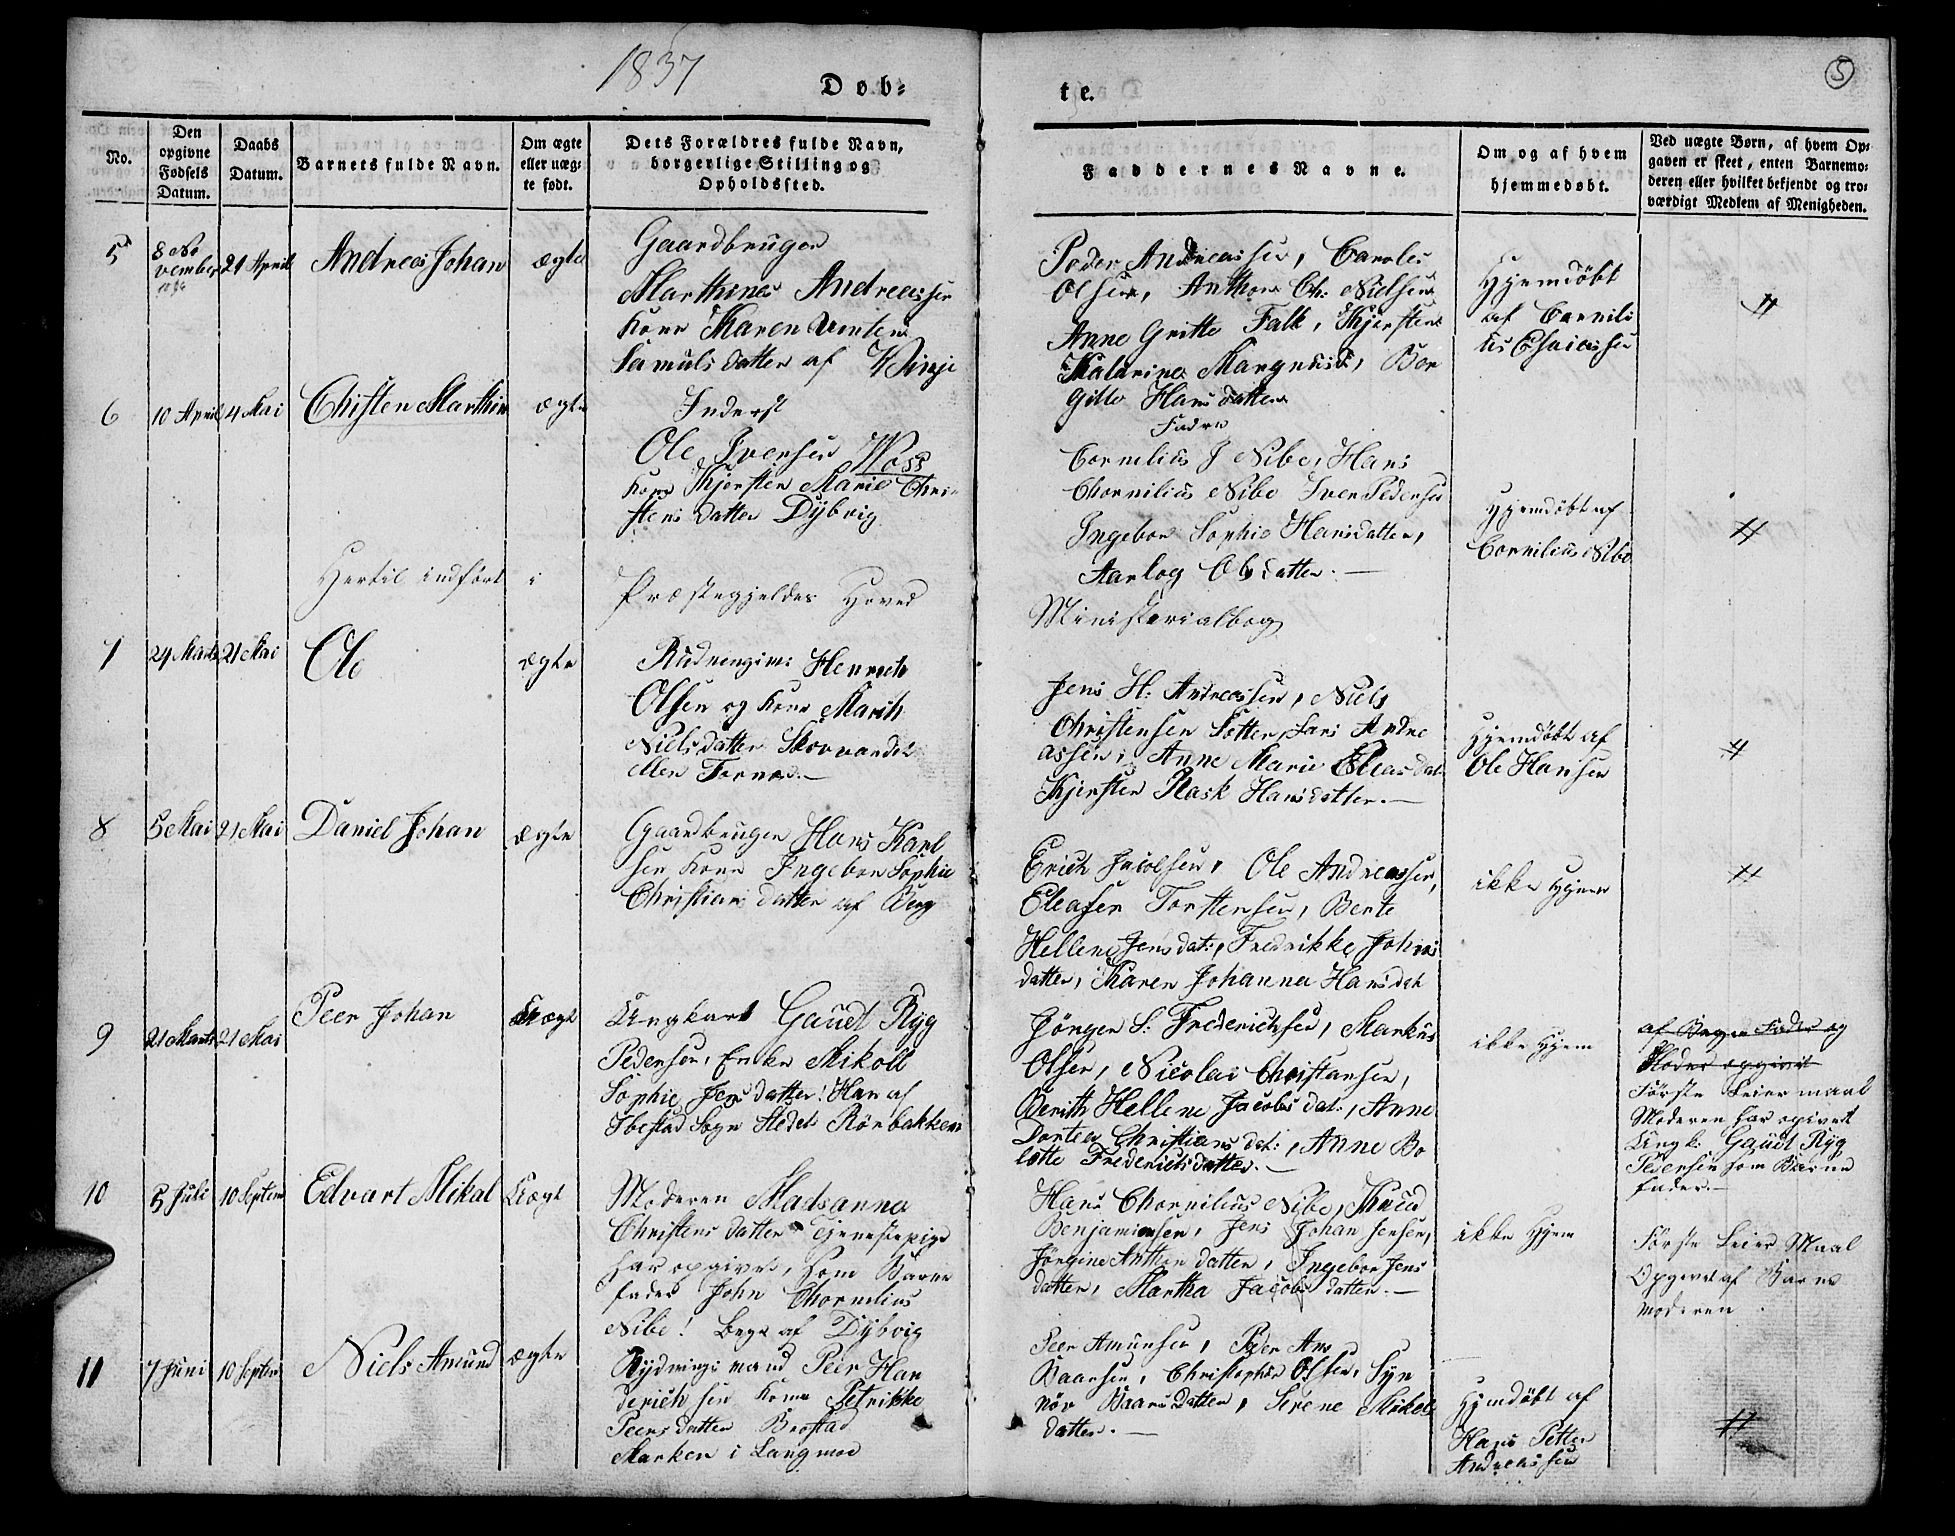 1837
Døb=
te.
5
No.
Den
opgivne
Fødsels
Datum.
Daabs
Datum.
Barnets fulde Navn.
Om ægte
eller uæg=
te født.
Dets Forældres fulde Navn,
borgerlige Stilling og
Opholdssted.
Faddernes Navne.
Om og af hvem
hjemmedøbt.
Ved uægte Børn, af hvem Op=
gaven er skeet, enten Barnemo=
deren eller hvilket bekjendt og tro=
værdigt Medlem af Menigheden.
5
8 No
vember
21 April
Andreas Johan
ægte
Gaardbruger
Marthines Andreassen
Kone Karen
Samuls datter af Vinje
Peder Andreassen, Caroles
Olsen, Anthon Ch: Nielsen
Anne Gritte Falk, Kjersten
Katarina Bor
gitte Hans datter
Hjemdöbt
af Cornili
us Esaiassen
6
10 April
4 Mai
Chisten Marthin
ægte
Inderst
Ole Iversen Woss
Kone Kjersten Marie Chri-
stens datter Dybvig
Fadre
Cornelius J Nibe, Hans
Chornilius Nibe Iver Pedersen
Ingebor Sophie Hansdatter,
Aarlog Ols datter. —
Hjemdöbt af
Cornilius Nibe
Hertil indfört i Præstegjeldes Hoved
Ministerialbog
7
24 Marts
21 Mai
Ole
ægte
Rüdningsm: Henrech
Olsen og Kone Marith
Nielsdatter Skovvandet
ellen Fornæs. —
Jens H: Andreassen, Niels
Christensen Sötter, Lars Andre
assen, Anne Marie Eleas dat
Kjersten Rask Hansdatter. —
Hjemdöbt af
Ole Hansen
8
5 Mai
21 Mai
Daniel Johan
ægte
Gaardbruger Hans Karl
sen Kone Ingebor Sophie
Christians datter af Berg
Erich Jacobsen, Ole Andreassen,
Eleaser Torstensen, Berte
Hellene Jensdat:, Fredrikke Johns
datter, Karen Johanna Hansdat
ikke Hjem
9
21 Marts
21 Mai
Peer Johan
Uægt
Ungkarl Gaudt Ryg
Pedersen, Enke Mikoll
Sophie Jens datter! Han af
Ibestad Sogn Stedet Rörbakken
Jörgen S: Frederichsen, Markus
Olsen, Nicolai Christansen,
Berith Hellene Jacobs dat:, Anne
Dortea Christians dat:, Anne Bo
lette Frederichsdatter. —
ikke Hjem
af Begge Fader og
Moder opgivet
Förste Leiermaal
Moderen har opgivet
Ungk: Gaudt Ryg
Pedersen som Barne
fader. —
10
5 Juli
10 Septem
Edvart Mikal
Uægt
Moderen Madsanna
Christens datter Tjenestepige
har opgivet, som Barne
fader John Chornelius
Nibe! Begge af Dybvig
Hans Chornilius Nibe, Knud
Benjaminsen, Jens Johan Jensen,
Jörgine Anthon datter, Ingebor Jens
datter, Martha Jacobs datter. —
ikke Hjem
Förste Leier Maal
Opgivet af Barne
moderen.
11
7 Juni
10 Septem
Niels Amund
ægte
Rydnings mand Peer Han
derich sen Kone Petrikke
Peers datter Brostad
Marken i Langmoe
Peer Amunsen, Peder Ams
Baarsen, Christopher Olsen, Syn
nör Baars datter, Serene Mikels
datter. —
Hjemdöbt af
Hans Petter
Andreassen